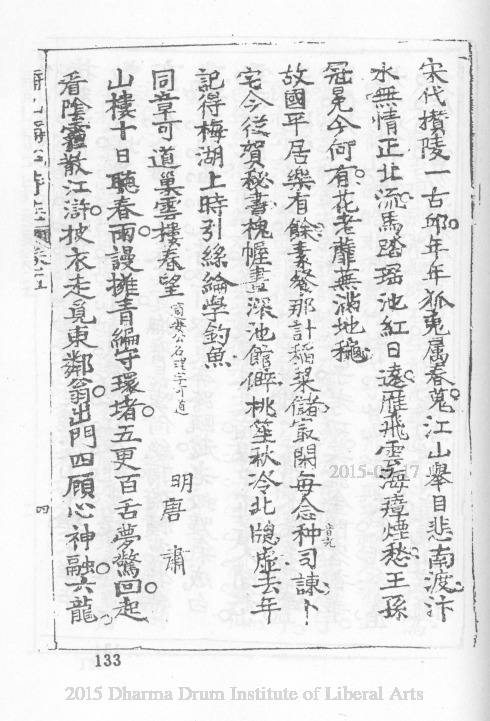 宋代攢陵一古邱年年狐兎属春蒐江山舉目悲南渡汴
水無情正北流馬踏瑶池紅日遠雁飛雲海瘴煙愁王孫
冠冕今何有花老蘼蕪滿地穐
故國平居樂有餘素飱那計稻粱儲最閑每念种司諫卜
音充
宅今從賀秘書槐幄晝深池館僻桃笙秋冷北牕虚去年
記得梅湖上時引絲綸學釣魚
同章可道巢雲樓春望
明唐肅
山樓十日聽春雨謾擁青編守環堵五更百舌夢驚回起
看陰霾散江滸披衣走覓東鄰翁出門四顧心神融六龍
四
133
2015 Dharma Drum Institute of Liberal Arts